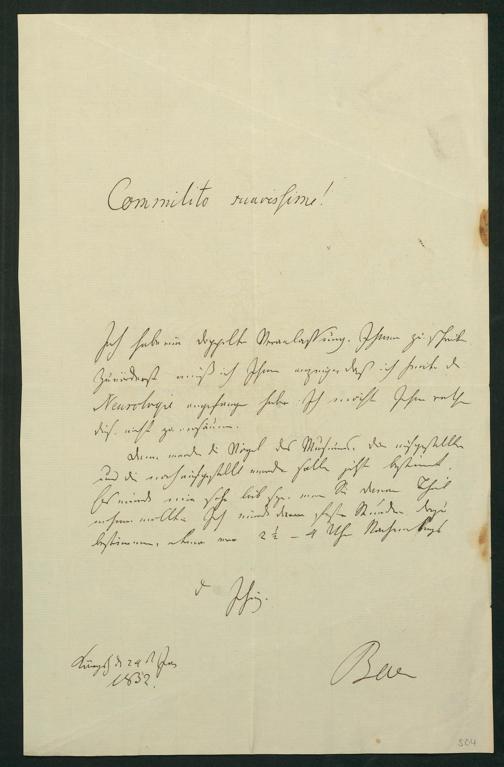 Commilito suavissime!
Ich habe eine doppelte Veranlassung, Ihnen zu schreiben
Zuvörderst muß ich Ihnen anzeigen daß ich heute die
Neurologie angefangen habe. Ich möchte Ihnen rathen
dies nicht zu versäumen.
Dann werden die Vögel des Museums, die aufgestellten
und die noch aufgestellt werden sollen jetzt bestimmt.
Es würde mir sehr lieb seyn wenn Sie daran Theil
nehmen wollten. Ich würde dann feste Stunden dazu
bestimmen, etwa von 2 1/2 – 4 Uhr Nachmittags
d Ihrig.
Königsb d 24
1832.
Baer
504